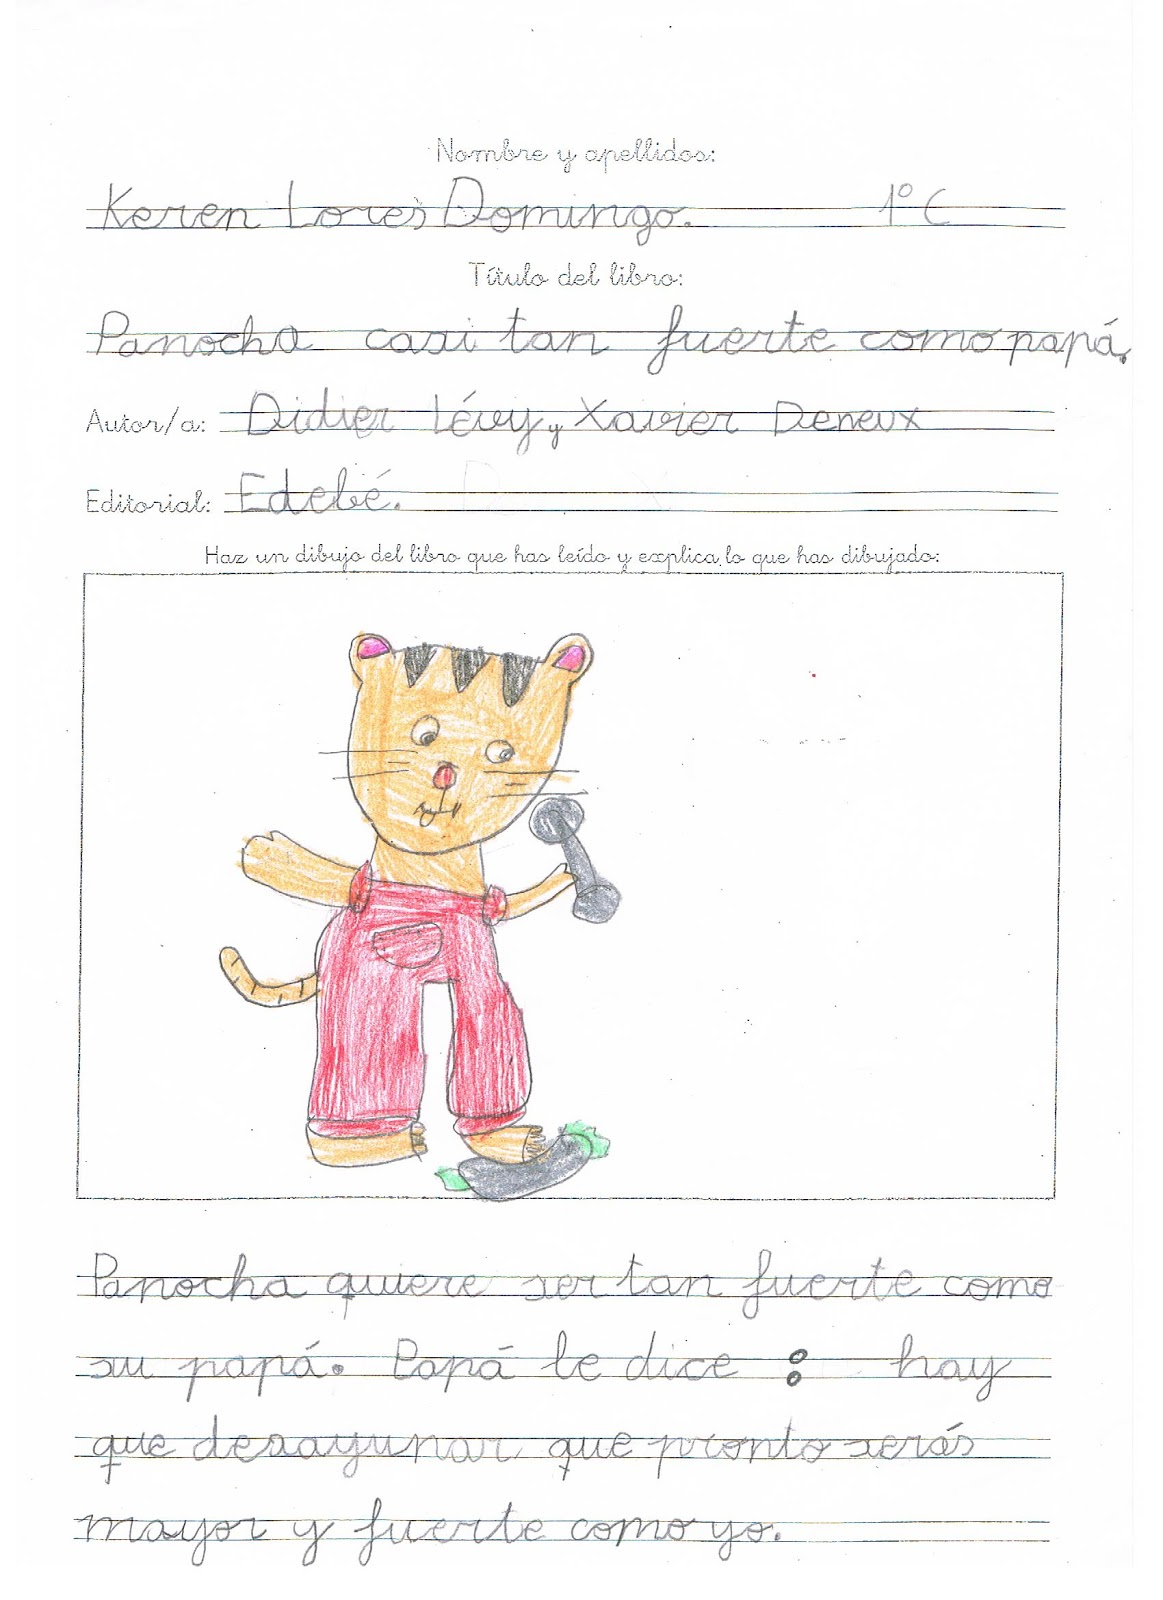 Nombre y apellidos:
Keren Lores Domingo. 1º C
Título del libro:
Panocha casi tan fuerte como papá.
Autor/a: Didier Lévy y Xavier Deneux
Editorial: Edebé.
Haz un dibujo del libro que has leído y explica lo que has dibujado:
Panocha quiere ser tan fuerte como
su papá. Papá le dice : hay
que desayunar que pronto serás
mayor y fuerte como yo.